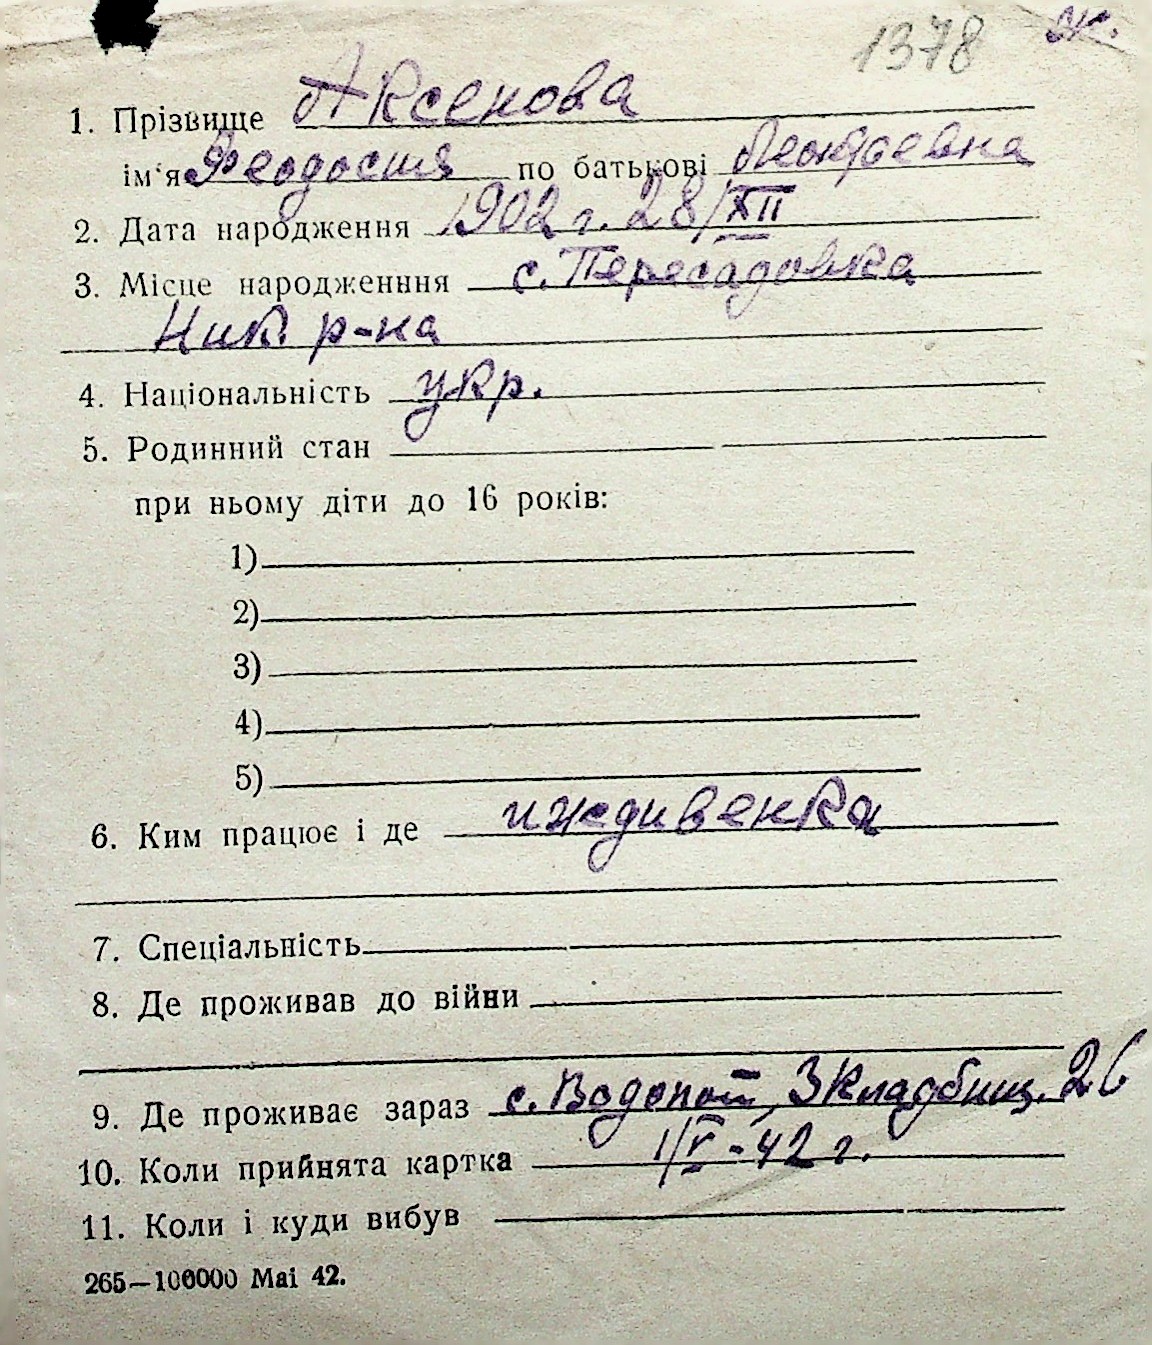 1378 ж.
1. Прізвище Аксенова
ім'я Феодосия по батькові
2. Дата народження 1902 г. 28/XII
3. Місце народженння с. Пересадовка
Ник. р-на
4. Національність укр.
5. Родинний стан
при ньому діти до 16 років:
1)
2)
3)
4)
5)
6. Ким працює і де иждивенка
7. Спеціальність
8. Де проживав до війни
9. Де проживає зараз с. Водопой, 3 Кладбищ. 26
10. Коли прийнята картка 1/V-42 г.
11. Коли і куди вибув
265—100000 Маі 42.